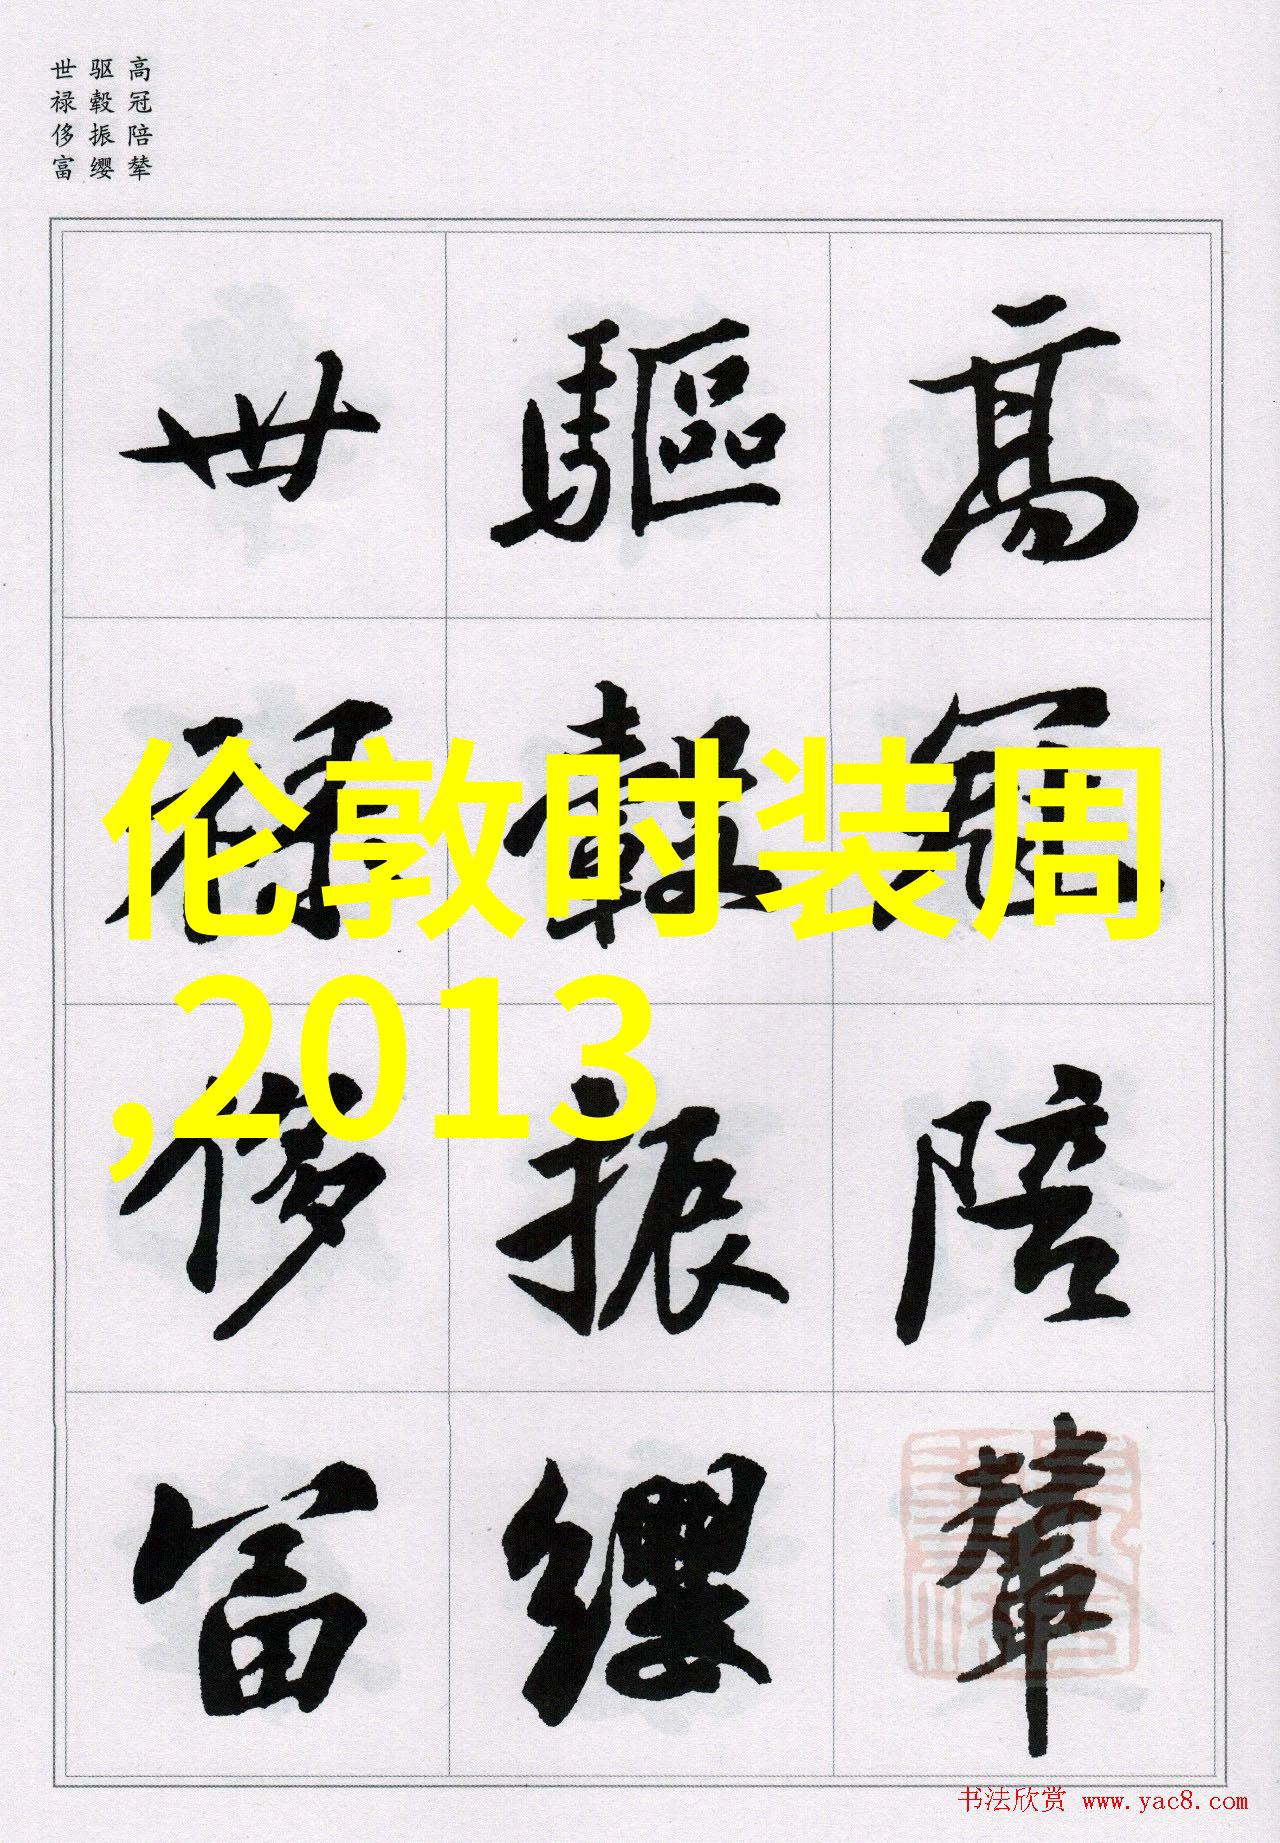 高冠陪辇
驱毂振缨
世禄侈富
高冠陪輦
驅轂振纓
世禄侈富
伦敦时装周
,2013
书法欣赏 www.yac8.com